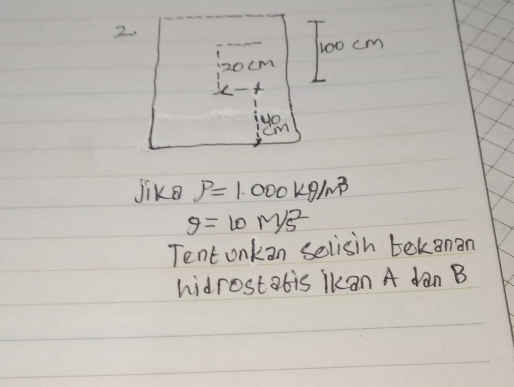 2.
100 cm
20 cm
40
cm
Jika ρ = 1.000 kg/m³
g = 10 m/s²
Tentunkan selisih tekanan
hidrostatis ikan A dan B